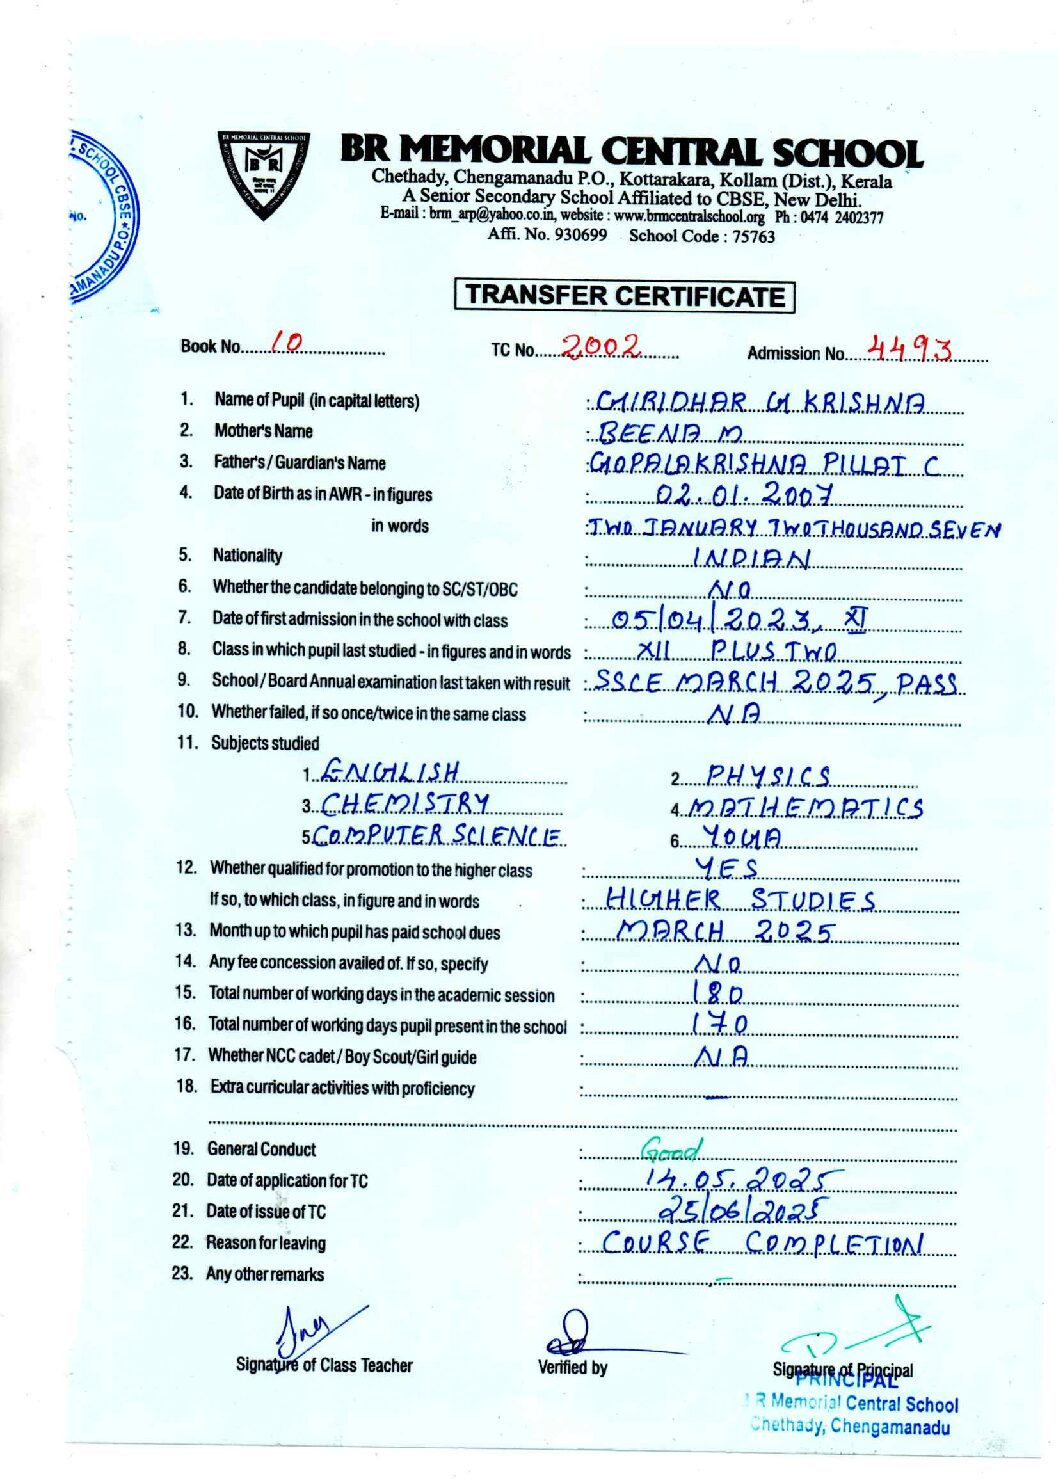 SCHOOL CBSE
No.
AMANADU P.O.
BR MEMORIAL CENTRAL SCHOOL
BR
BR MEMORIAL CENTRAL SCHOOL
Chethady, Chengamanadu P.O., Kottarakara, Kollam (Dist.), Kerala
A Senior Secondary School Affiliated to CBSE, New Delhi.
E-mail : brm_arp@yahoo.co.in, website : www.brmcentralschool.org Ph : 0474 2402377
Affi. No. 930699 School Code : 75763
TRANSFER CERTIFICATE
Book No. 10 TC No. 2002 Admission No. 4493
1. Name of Pupil (in capital letters) : GIRIDHAR G KRISHNA
2. Mother's Name : BEENA M
3. Father's / Guardian's Name : GOPALAKRISHNA PILLAI C
4. Date of Birth as in AWR - in figures : 02.01.2007
in words : TWO JANUARY TWO THOUSAND SEVEN
5. Nationality : INDIAN
6. Whether the candidate belonging to SC/ST/OBC : NO
7. Date of first admission in the school with class : 05/04/2023, XI
8. Class in which pupil last studied - in figures and in words : XII PLUS TWO
9. School / Board Annual examination last taken with result : SSCE MARCH 2025, PASS
10. Whether failed, if so once/twice in the same class : NA
11. Subjects studied
1. ENGLISH 2. PHYSICS
3. CHEMISTRY 4. MATHEMATICS
5. COMPUTER SCIENCE 6. YOGA
12. Whether qualified for promotion to the higher class : YES
If so, to which class, in figure and in words : HIGHER STUDIES
13. Month up to which pupil has paid school dues : MARCH 2025
14. Any fee concession availed of. If so, specify : NO
15. Total number of working days in the academic session : 180
16. Total number of working days pupil present in the school : 170
17. Whether NCC cadet / Boy Scout/Girl guide : NA
18. Extra curricular activities with proficiency : —
19. General Conduct : Good
20. Date of application for TC : 14.05.2025
21. Date of issue of TC : 25/06/2025
22. Reason for leaving : COURSE COMPLETION
23. Any other remarks : –
Signature of Class Teacher Verified by Signature of Principal
PRINCIPAL
B R Memorial Central School
Chethady, Chengamanadu